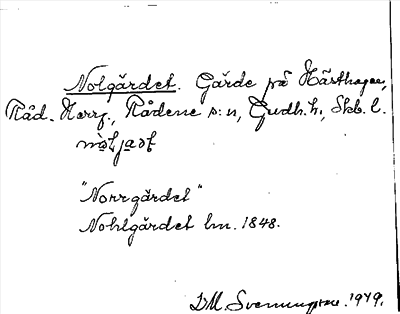 Nolgärdet. Gärde på Hästhagen,
Råd. Herrg., Rådene s:n, Gudh. h., Skb. l.
"Norrgärdet"
Nohlgärdet lm. 1848.
D.M. Svenningsson. 1949.